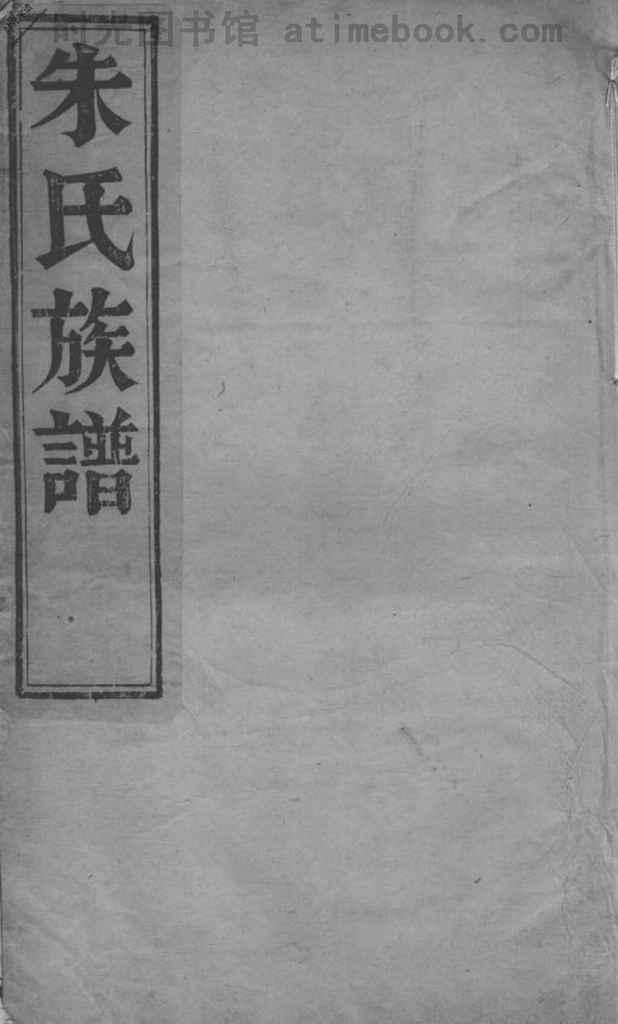 时光图书馆 atimebook.com
朱氏族譜